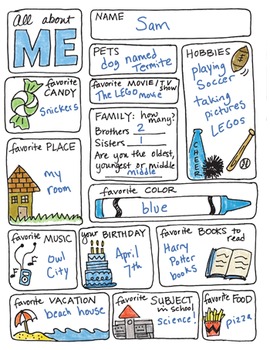 All about
ME
NAME
Sam
PETS
dog named
Termite
HOBBIES
playing
Soccer
taking
pictures
LEGOs
CHEER
favorite
CANDY
Snickers
favorite MOVIE/T.V. show
The LEGO movie
FAMILY: how many?
Brothers 2
Sisters 1
Are you the oldest,
youngest or middle
middle
favorite PLACE
my
room
favorite COLOR
blue
favorite MUSIC
Owl
City
your BIRTHDAY
April
7th
favorite BOOKS to read
Harry
Potter
books
favorite VACATION
beach house
favorite SUBJECT in school
Science!
favorite FOOD
pizza